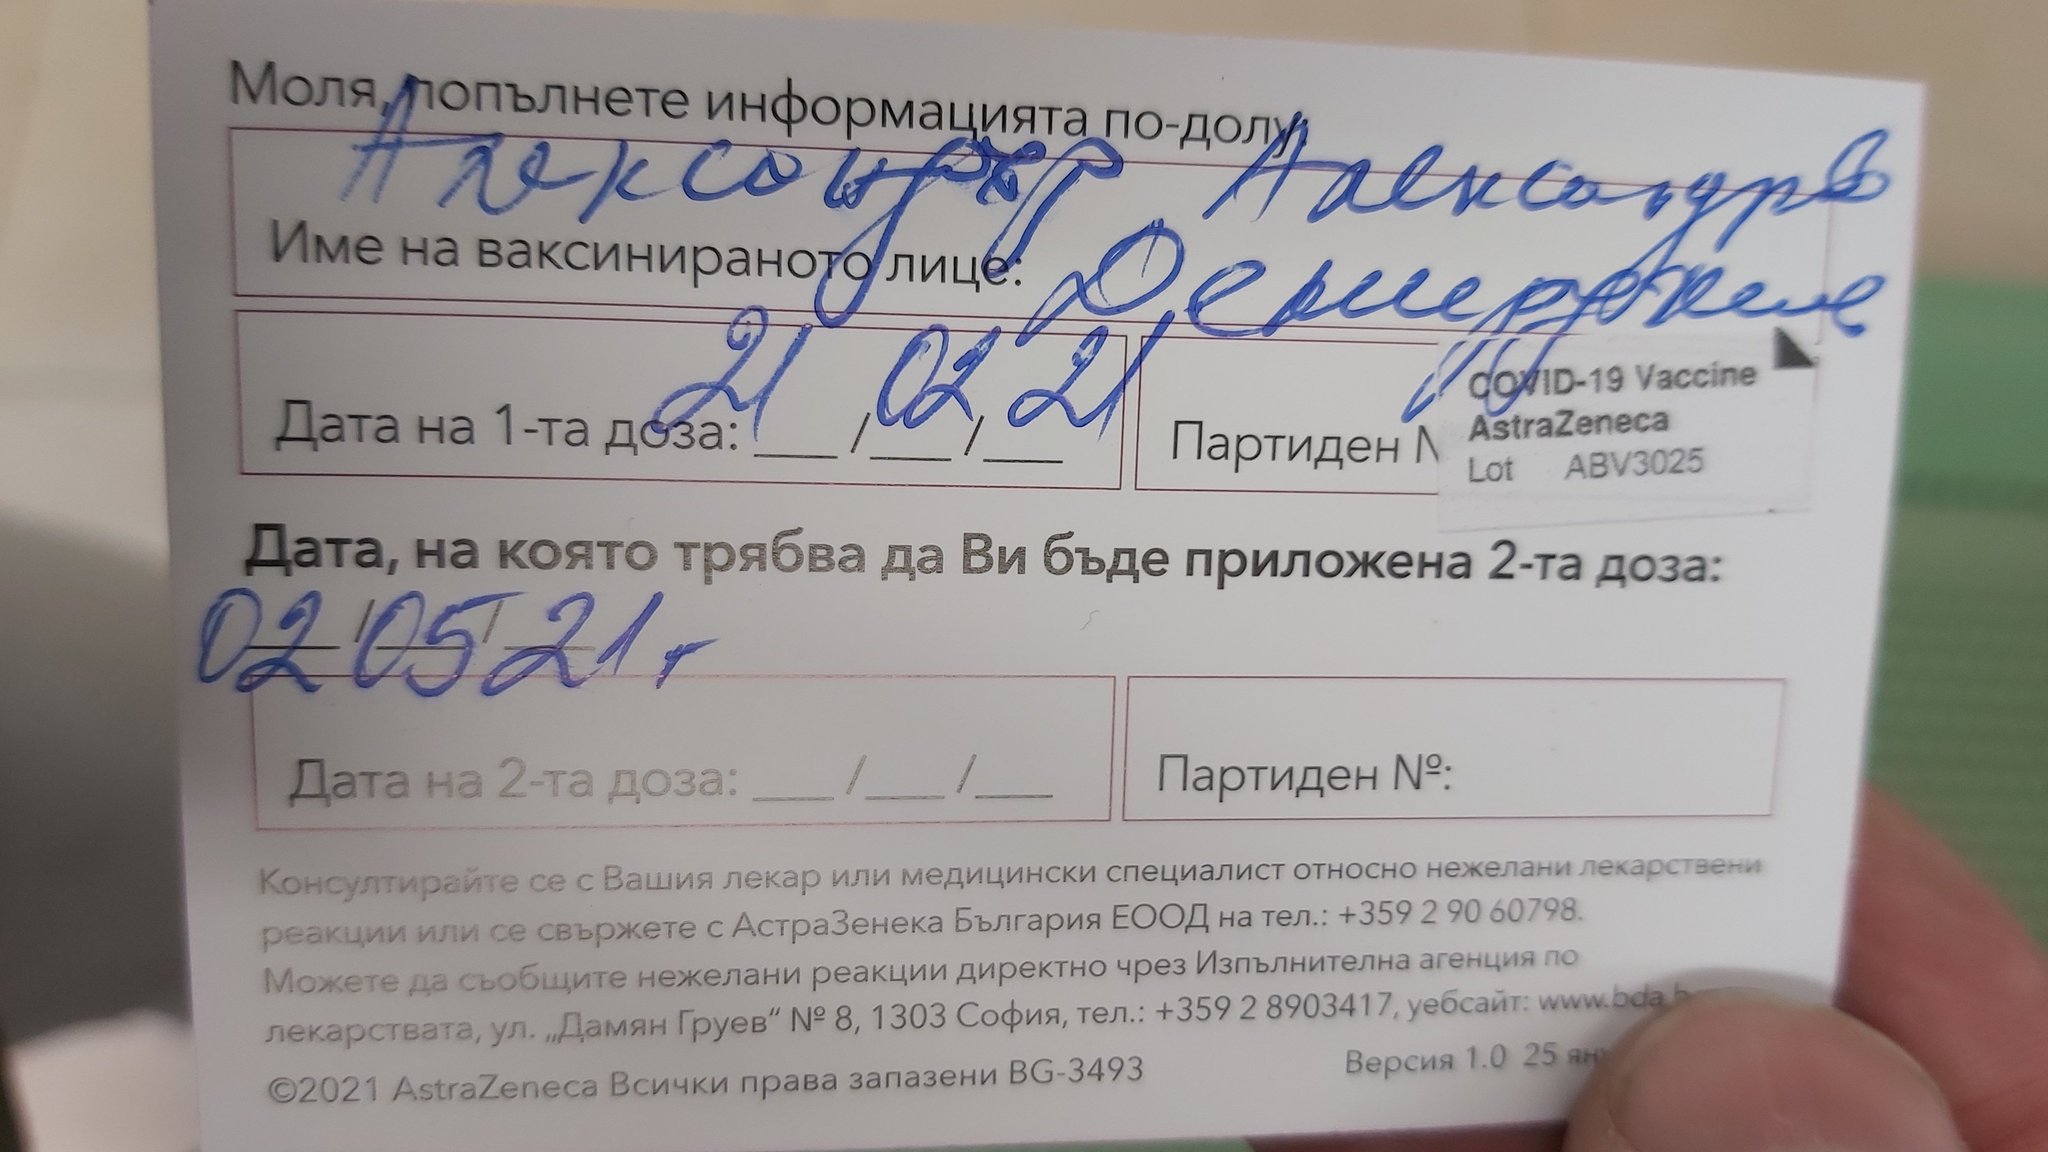 Моля, попълнете информацията по-долу:
Александър Александров
Име на ваксинираното лице:
Дата на 1-та доза: 21/02/21
Партиден N
COVID-19 Vaccine
AstraZeneca
Lot ABV3025
Дата, на която трябва да Ви бъде приложена 2-та доза:
02/05/21г
Дата на 2-та доза: ___/___/___
Партиден №:
Консултирайте се с Вашия лекар или медицински специалист относно нежелани лекарствени
реакции или се свържете с АстраЗенека България ЕООД на тел.: +359 2 90 60798.
Можете да съобщите нежелани реакции директно чрез Изпълнителна агенция по
лекарствата, ул. „Дамян Груев“ № 8, 1303 София, тел.: +359 2 8903417, уебсайт: www.bda.b
©2021 AstraZeneca Всички права запазени BG-3493
Версия 1.0 25 ян